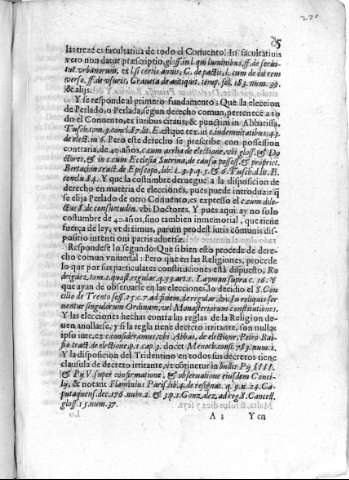 las treze es facultatiua de todo el Conuento: In facultatiuis
vero non datur præscriptio, gloss. in l. qui luminibus, ff. de seruitut.
vrbanorum, ex l. si certis annis, C. de pactis, l. cum de in rem
verso, ff. de vsuris, Graueta de antiquit. temp. fol. 183. num. 39.
& alij.
Y se responde al primero fundamento: Que la eleccion
de Perlado, o Perlada, segun derecho comun, pertenece a todo
el Conuento, ex
Tusch. tom. 3. concl. 87. lit. E.
de elect. in 6. Pero este derecho se prescribe con possession
contraria, de 40. años, c. cum ecclesia de electione, vbi gloss. & Doctores,
& in c. cum Ecclesia Sutrina, de causa posses. & propriet.
Bertachin. tract. de Episcopo, lib. 1. 3. p. q. 5. & 6. Tusch. lit. E.
concl. 84. Y que la costumbre derueque a la disposicion de
derecho en materia de elecciones, pues puede introduzir q
se elija Perlado de otro Conuento, es expresso el c. cum dilectus
8. de consuetudin. vbi Doctores. Y pues aqui ay no solo
costumbre de 40. años, sino tambien inmemorial, que tiene
fuerça de ley, vt diximus, parum prodest iuris communis dispositio
intenti oni partis aduersæ.
Respondese lo segundo: Que si bien esto procede de derecho
comun vniuersal: Pero que en las Religiones, procede
lo que por sus particulares constituciones está dispuesto, Rodriguez,
tom. 1. quæst. regular. q. 33. art. 1. Layman supra c. 16. Y
que ayan de obseruarse en las elecciones, lo decidio el S. Concilio
de Trento sess. 25. c. 7. ad finem, de regular. ibi: In reliquis seruentur
singulorum Ordinum, vel Monasteriorum constitutiones.
Y las elecciones hechas contra las reglas de la Religion deuen
anullarse, y si la regla tiene decreto irritante, son nullas
ipso iure, ex c. consideramus, vbi Abbas, de electione, Petro Baissio
tract. de electione, p. 1. cap. 3. docet Menoch. const. 783. num. 2.
Y la disposicion del Tridentino en todos sus decretos tiene
clausula de decreto irritante, vt continetur in bullis Pij IIII.
& Pij V. super confirmatione, & obseruatione eiusdem Concilij,
& notant Flaminius Paris. lib. 4. de resignat. q. 9. n. 24. Caputaquens.
dec. 176. num. 2. & 3. p. 1. Gonzalez, ad reg. 8. Cancell.
gloss. 15. num. 37.
A 3 Y en